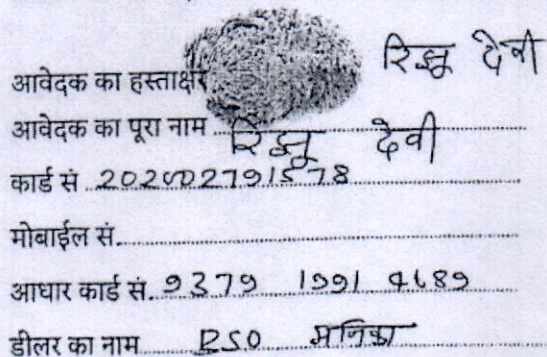 रिझु देवी
आवेदक का हस्ताक्षर
आवेदक का पूरा नाम रिझु देवी
कार्ड सं 202002791578
मोबाईल सं.
आधार कार्ड सं. 9379 1991 4689
डीलर का नाम PSO मनिका